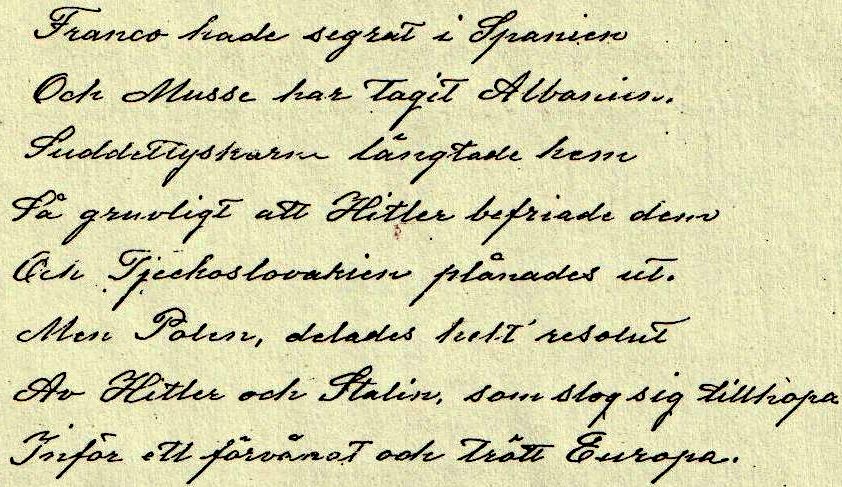 Franco hade segrat i Spanien
Och Musse har tagit Albanien.
Suddettyskarne längtade hem
Så gruvligt att Hitler befriade dem
Och Tjeckoslovakien plånades ut.
Men Polen, delades helt resolut
Av Hitler och Stalin, som slog sig tillhopa
Inför ett förvånat och trött Europa.